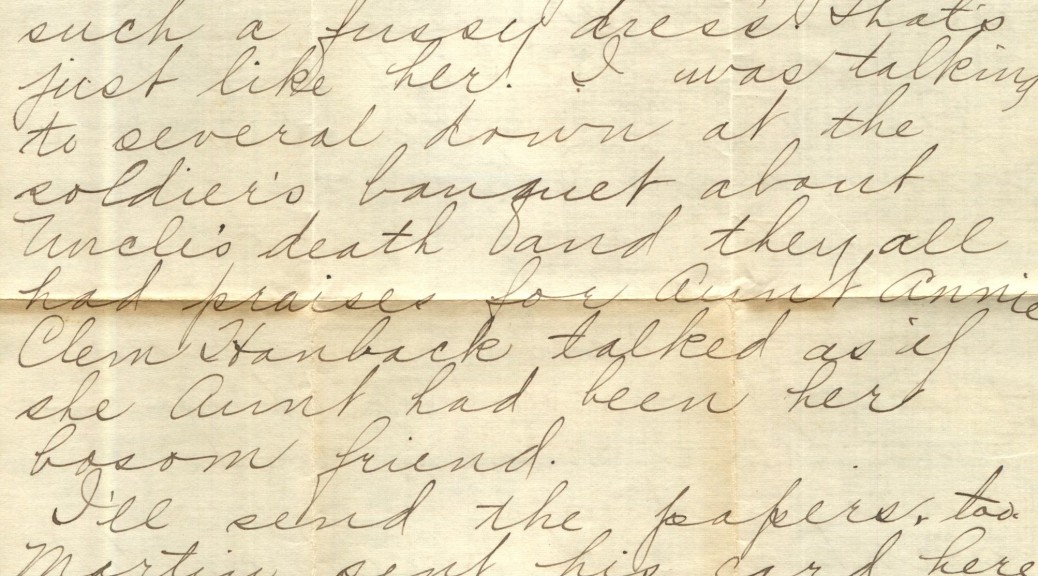 such a fussy dress. That's
just like her. I was talking
to several down at the
soldier's banquet about
Uncle's death and they all
had praises for Aunt Annie
Clem Hanback talked as if
she Aunt had been her
bosom friend.
I'll send the papers. too
Martin sent his card here